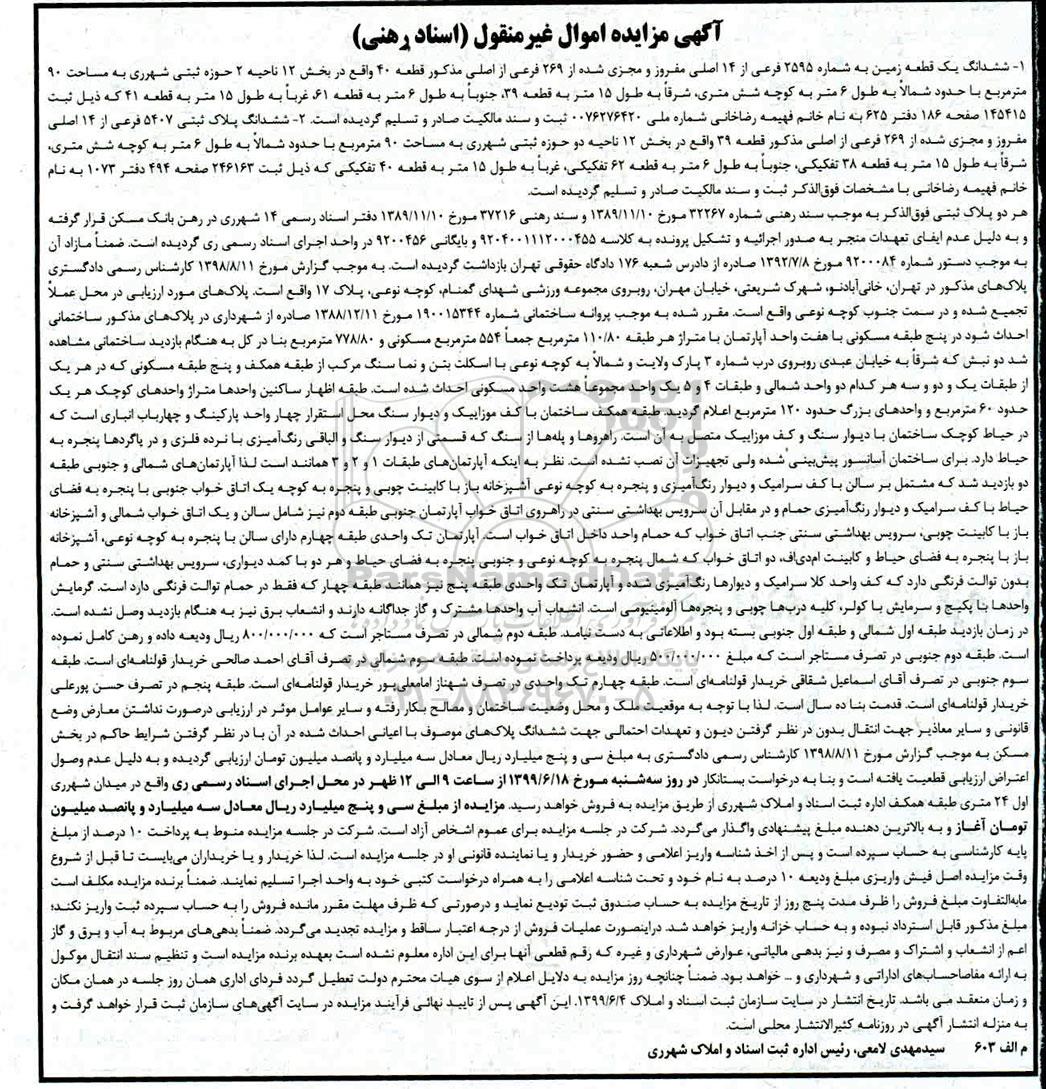 آگهی مزایده اموال غیرمنقول (اسناد رهنی)
۱- ششدانگ یک قطعه زمین به شماره ۲۵۹۵ فرعی از ۱۴ اصلی مفروز و مجزی شده از ۲۶۹ فرعی از اصلی مذکور قطعه ۴۰ واقع در بخش ۱۲ ناحیه ۲ حوزه ثبتی شهرری به مساحت ۹۰
مترمربع با حدود شمالاً به طول ۶ متر به کوچه شش متری، شرقاً به طول ۱۵ متر به قطعه ۳۹، جنوباً به طول ۶ متر به قطعه ۶۱، غرباً به طول ۱۵ متر به قطعه ۴۱ که ذیل ثبت
۱۴۵۴۱۵ صفحه ۱۸۶ دفتر ۶۲۵ به نام خانم فهیمه رضاخانی شماره ملی ۰۰۷۶۲۷۶۴۲۰ ثبت و سند مالکیت صادر و تسلیم گردیده است. ۲- ششدانگ پلاک ثبتی ۵۴۰۷ فرعی از ۱۴ اصلی
مفروز و مجزی شده از ۲۶۹ فرعی از اصلی مذکور قطعه ۳۹ واقع در بخش ۱۲ ناحیه دو حوزه ثبتی شهرری به مساحت ۹۰ مترمربع با حدود شمالاً به طول ۶ متر به کوچه شش متری،
شرقاً به طول ۱۵ متر به قطعه ۳۸ تفکیکی، جنوباً به طول ۶ متر به قطعه ۶۲ تفکیکی، غرباً به طول ۱۵ متر به قطعه ۴۰ تفکیکی که ذیل ثبت ۲۴۶۱۶۳ صفحه ۴۹۴ دفتر ۱۰۷۳ به نام
خانم فهیمه رضاخانی با مشخصات فوق‌الذکر ثبت و سند مالکیت صادر و تسلیم گردیده است.
هر دو پلاک ثبتی فوق‌الذکر به موجب سند رهنی شماره ۳۲۲۶۷ مورخ ۱۳۸۹/۱۱/۱۰ و سند رهنی ۳۷۲۱۶ مورخ ۱۳۸۹/۱۱/۱۰ دفتر اسناد رسمی ۱۴ شهرری در رهن بانک مسکن قرار گرفته
و به دلیل عدم ایفای تعهدات منجر به صدور اجرائیه و تشکیل پرونده به کلاسه ۹۲۰۴۰۰۱۱۱۲۰۰۰۴۵۵ و بایگانی ۹۲۰۰۴۵۶ در واحد اجرای اسناد رسمی ری گردیده است. ضمناً مازاد آن
به موجب دستور شماره ۹۲۰۰۰۸۴ مورخ ۱۳۹۲/۷/۸ صادره از دادرس شعبه ۱۷۶ دادگاه حقوقی تهران بازداشت گردیده است. به موجب گزارش مورخ ۱۳۹۸/۸/۱۱ کارشناس رسمی دادگستری
پلاک‌های مذکور در تهران، خانی‌آبادنو، شهرک شریعتی، خیابان مهران، روبروی مجموعه ورزشی شهدای گمنام، کوچه نوعی، پلاک ۱۷ واقع است. پلاک‌های مورد ارزیابی در محل عملاً
تجمیع شده و در سمت جنوب کوچه نوعی واقع است. مقرر شده به موجب پروانه ساختمانی شماره ۱۹۰۰۱۵۳۴۴ مورخ ۱۳۸۸/۱۲/۱۱ صادره از شهرداری در پلاک‌های مذکور ساختمانی
احداث شود در پنج طبقه مسکونی با هفت واحد آپارتمان با متراژ هر طبقه ۱۱۰/۸۰ مترمربع جمعاً ۵۵۴ مترمربع مسکونی و ۷۷۸/۸۰ مترمربع بنا در کل به هنگام بازدید ساختمانی مشاهده
شد دو نبش که شرقاً به خیابان عبدی روبروی درب شماره ۳ پارک ولایت و شمالاً به کوچه نوعی با اسکلت بتن و نما سنگ مرکب از طبقه همکف و پنج طبقه مسکونی که در هر یک
از طبقات یک و دو و سه هر کدام دو واحد شمالی و طبقات ۴ و ۵ یک واحد مجموعاً هشت واحد مسکونی احداث شده است. طبقه اظهار ساکنین واحدها متراژ واحدهای کوچک هر یک
حدود ۶۰ مترمربع و واحدهای بزرگ حدود ۱۲۰ مترمربع اعلام گردید. طبقه همکف ساختمان با کف موزاییک و دیوار سنگ محل استقرار چهار واحد پارکینگ و چهارباب انباری است که
در حیاط کوچک ساختمان با دیوار سنگ و کف موزاییک متصل به آن است. راهروها و پله‌ها از سنگ که قسمتی از دیوار سنگ و الباقی رنگ‌آمیزی با نرده فلزی و در پاگردها پنجره به
حیاط دارد. برای ساختمان آسانسور پیش‌بینی شده ولی تجهیزات آن نصب نشده است. نظر به اینکه آپارتمان‌های طبقات ۱ و ۲ و ۳ همانند است لذا آپارتمان‌های شمالی و جنوبی طبقه
دو بازدید شد که مشتمل بر سالن با کف سرامیک و دیوار رنگ‌آمیزی و پنجره به کوچه نوعی آشپزخانه باز با کابینت چوبی و پنجره به کوچه یک اتاق خواب جنوبی با پنجره به فضای
حیاط با کف سرامیک و دیوار رنگ‌آمیزی حمام و در مقابل آن سرویس بهداشتی سنتی در راهروی اتاق خواب آپارتمان جنوبی طبقه دوم نیز شامل سالن و یک اتاق خواب شمالی و آشپزخانه
باز با کابینت چوبی، سرویس بهداشتی سنتی جنب اتاق خواب که حمام واحد داخل اتاق خواب است. آپارتمان تک واحدی طبقه چهارم دارای سالن با پنجره به کوچه نوعی، آشپزخانه
باز با پنجره به فضای حیاط و کابینت ام‌دی‌اف، دو اتاق خواب که شمال پنجره به کوچه نوعی و جنوبی پنجره به فضای حیاط و هر دو با کمد دیواری، سرویس بهداشتی سنتی و حمام
بدون توالت فرنگی دارد که کف واحد کلا سرامیک و دیوارها رنگ‌آمیزی شده و آپارتمان تک واحدی طبقه پنج نیز همانند طبقه چهار که فقط در حمام توالت فرنگی دارد است. گرمایش
واحدها با پکیج و سرمایش با کولر، کلیه درب‌ها چوبی و پنجره‌ها آلومینیومی است. انشعاب آب واحدها مشترک و گاز جداگانه دارند و انشعاب برق نیز به هنگام بازدید وصل نشده است.
در زمان بازدید طبقه اول شمالی و طبقه اول جنوبی بسته بود و اطلاعاتی به دست نیامد. طبقه دوم شمالی در تصرف مستاجر است که ۸۰۰/۰۰۰/۰۰۰ ریال ودیعه داده و رهن کامل نموده
است. طبقه دوم جنوبی در تصرف مستاجر است که مبلغ ۵۰۰/۰۰۰/۰۰۰ ریال ودیعه پرداخت نموده است. طبقه سوم شمالی در تصرف آقای احمد صالحی خریدار قولنامه‌ای است. طبقه
سوم جنوبی در تصرف آقای اسماعیل شقاقی خریدار قولنامه‌ای است. طبقه چهارم تک واحدی در تصرف شهناز امامعلی‌پور خریدار قولنامه‌ای است. طبقه پنجم در تصرف حسن پورعلی
خریدار قولنامه‌ای است. قدمت بنا ده سال است. لذا با توجه به موقعیت ملک و محل وضعیت ساختمان و مصالح بکار رفته و سایر عوامل موثر در ارزیابی درصورت نداشتن معارض وضع
قانونی و سایر معاذیر جهت انتقال بدون در نظر گرفتن دیون و تعهدات احتمالی جهت ششدانگ پلاک‌های موصوف با اعیانی احداث شده در آن با در نظر گرفتن شرایط حاکم در بخش
مسکن به موجب گزارش مورخ ۱۳۹۸/۸/۱۱ کارشناس رسمی دادگستری به مبلغ سی و پنج میلیارد ریال معادل سه میلیارد و پانصد میلیون تومان ارزیابی گردیده و به دلیل عدم وصول
اعتراض ارزیابی قطعیت یافته است و بنا به درخواست بستانکار در روز سه‌شنبه مورخ ۱۳۹۹/۶/۱۸ از ساعت ۹ الی ۱۲ ظهر در محل اجرای اسناد رسمی ری واقع در میدان شهرری
اول ۲۴ متری طبقه همکف اداره ثبت اسناد و املاک شهرری از طریق مزایده به فروش خواهد رسید. مزایده از مبلغ سی و پنج میلیارد ریال معادل سه میلیارد و پانصد میلیون
تومان آغاز و به بالاترین دهنده مبلغ پیشنهادی واگذار می‌گردد. شرکت در جلسه مزایده برای عموم اشخاص آزاد است. شرکت در جلسه مزایده منوط به پرداخت ۱۰ درصد از مبلغ
پایه کارشناسی به حساب سپرده است و پس از اخذ شناسه واریز اعلامی و حضور خریدار و یا نماینده قانونی او در جلسه مزایده است. لذا خریدار و یا خریداران می‌بایست تا قبل از شروع
وقت مزایده اصل فیش واریزی مبلغ ودیعه ۱۰ درصد به نام خود و تحت شناسه اعلامی را به همراه درخواست کتبی خود به واحد اجرا تسلیم نمایند. ضمناً برنده مزایده مکلف است
مابه‌التفاوت مبلغ فروش را ظرف مدت پنج روز از تاریخ مزایده به حساب صندوق ثبت تودیع نماید و درصورتی که ظرف مهلت مقرر مانده فروش را به حساب سپرده ثبت واریز نکند؛
مبلغ مذکور قابل استرداد نبوده و به حساب خزانه واریز خواهد شد. دراینصورت عملیات فروش از درجه اعتبار ساقط و مزایده تجدید می‌گردد. ضمناً بدهی‌های مربوط به آب و برق و گاز
اعم از انشعاب و اشتراک و مصرف و نیز بدهی مالیاتی، عوارض شهرداری و غیره که رقم قطعی آنها برای این اداره معلوم نشده است بعهده برنده مزایده است و تنظیم سند انتقال موکول
به ارائه مفاصاحساب‌های اداراتی و شهرداری و ... خواهد بود. ضمناً چنانچه روز مزایده به دلایل اعلام از سوی هیات محترم دولت تعطیل گردد فردای اداری همان روز جلسه در همان مکان
و زمان منعقد می باشد. تاریخ انتشار در سایت سازمان ثبت اسناد و املاک ۱۳۹۹/۶/۴. این آگهی پس از تایید نهائی فرآیند مزایده در سایت آگهی‌های سازمان ثبت قرار خواهد گرفت و
به منزله انتشار آگهی در روزنامه کثیرالانتشار محلی است.
م الف ۶۰۳ سیدمهدی لامعی، رئیس اداره ثبت اسناد و املاک شهرری
ParsNamadData